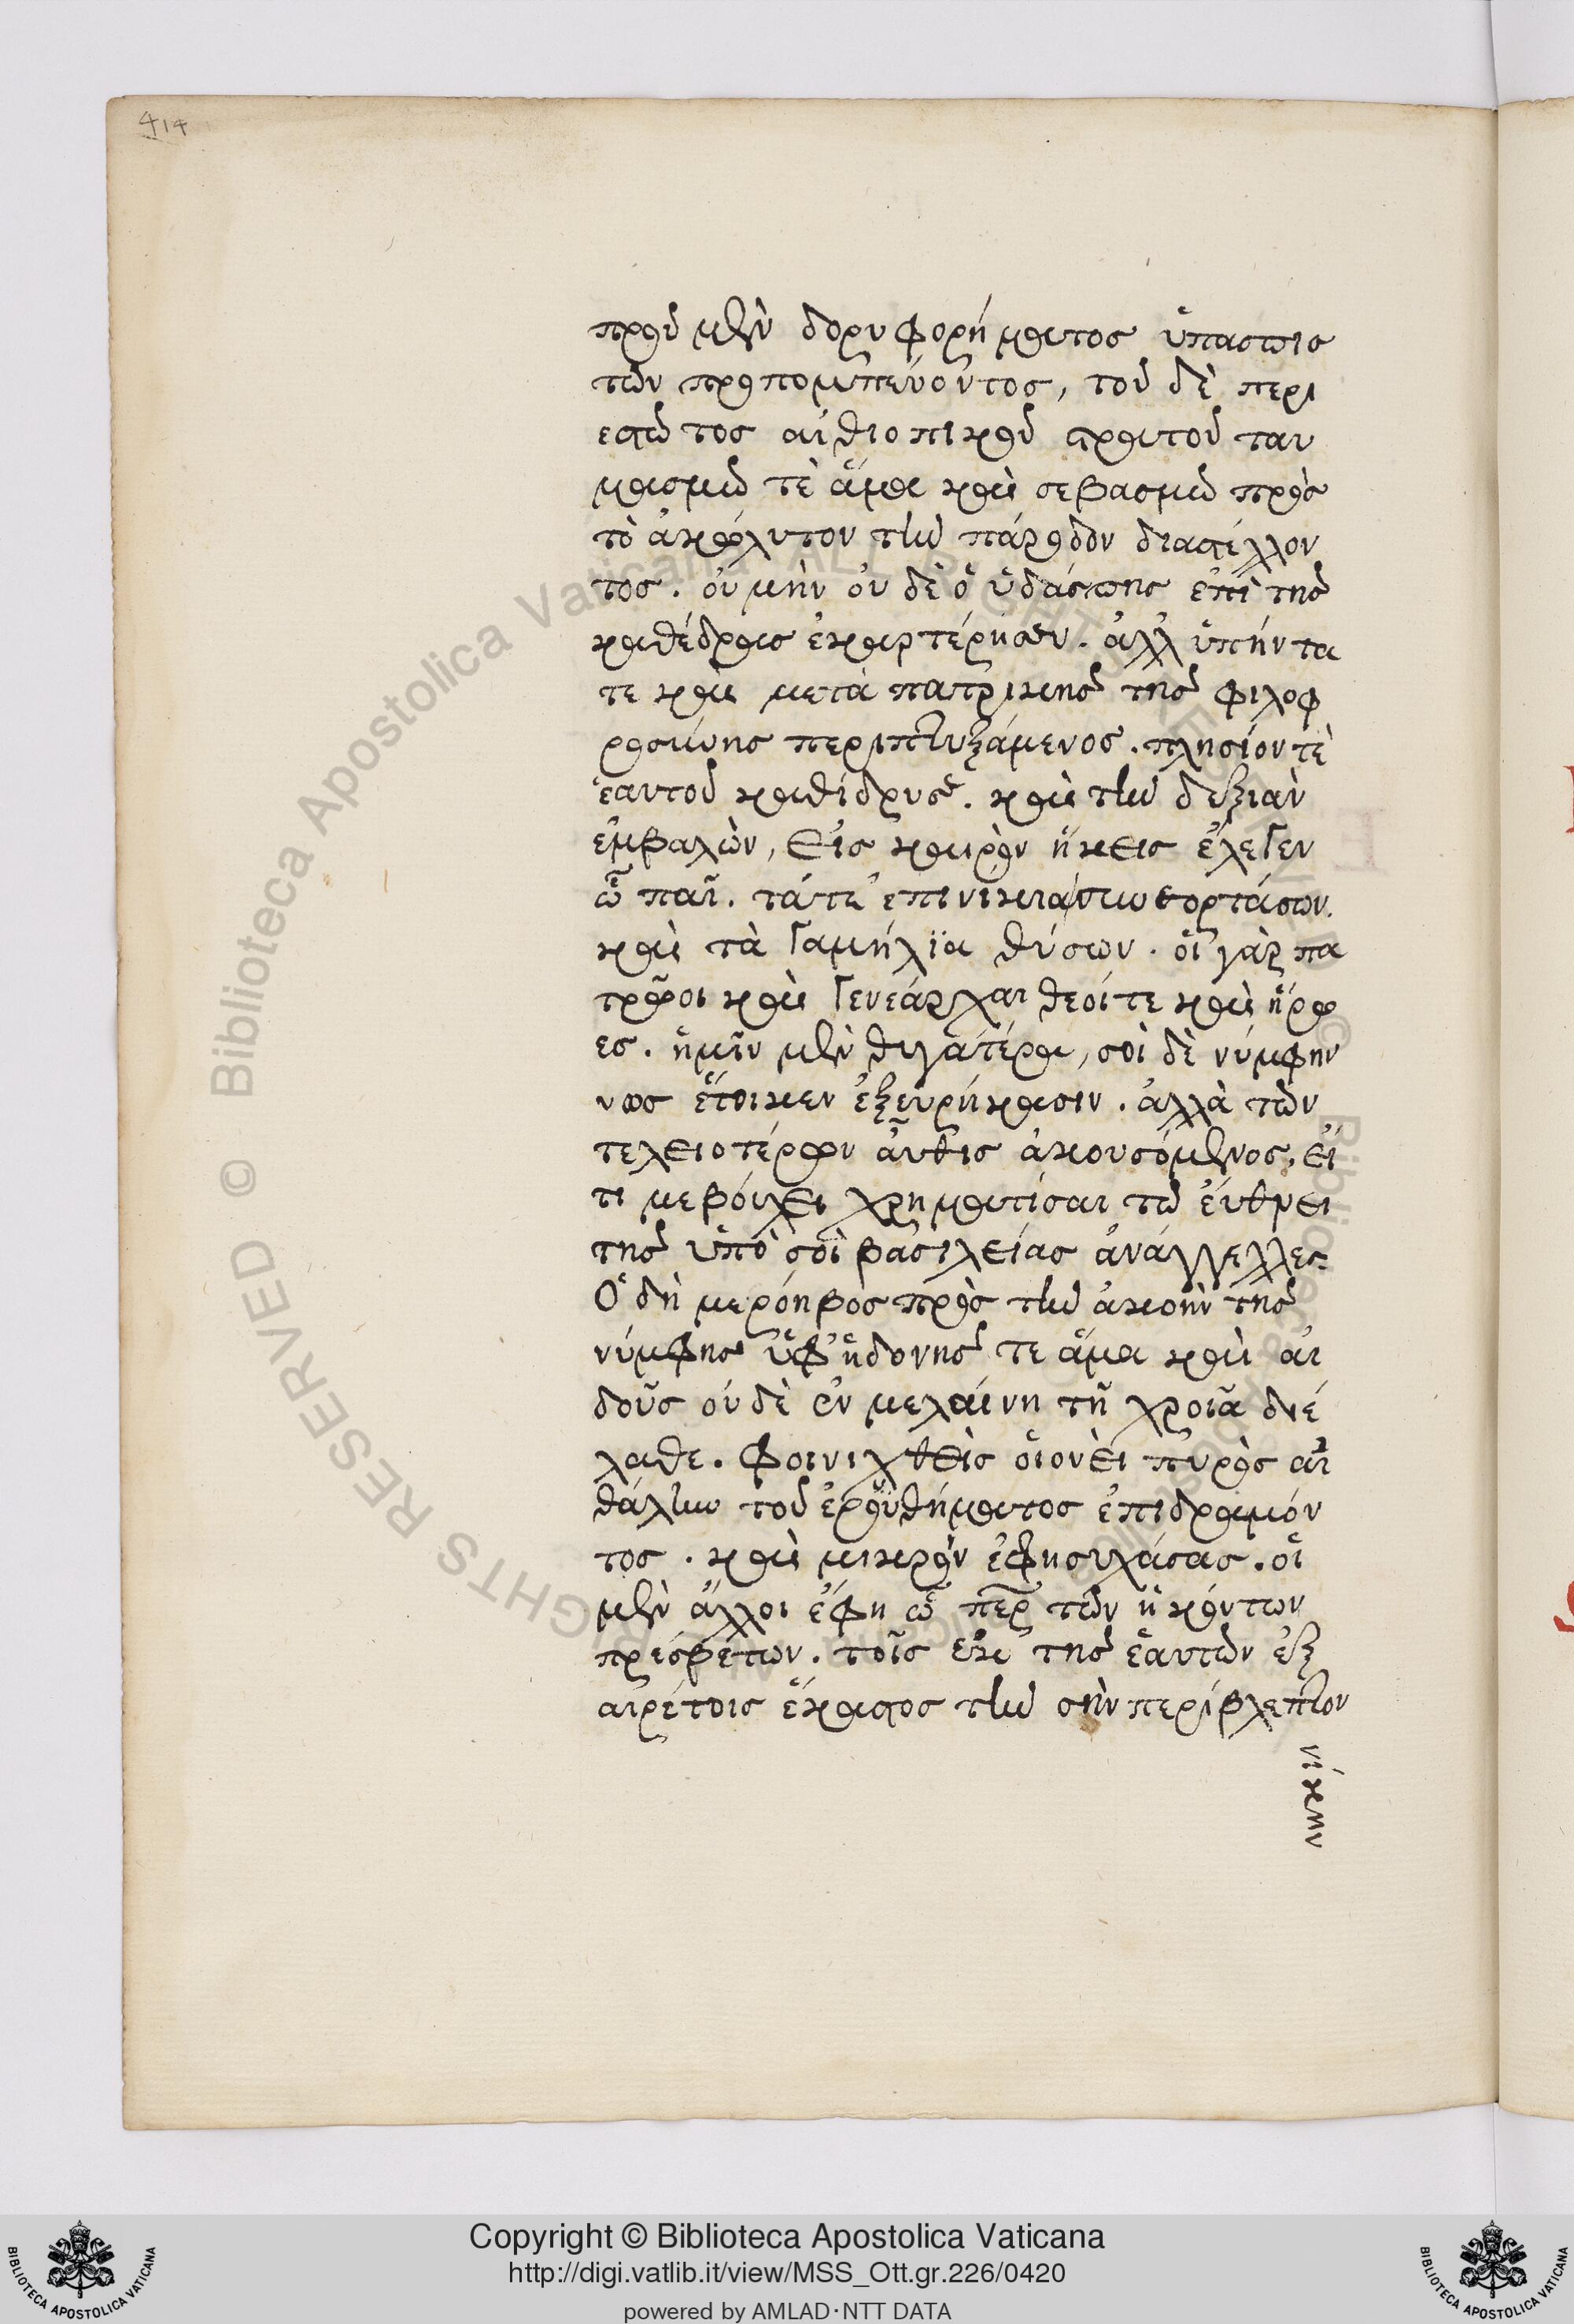 414
προῦ μὲν δορυφορήματος ὑπασπις
τῶν προπομπεύοντος, τοῦ δὲ περι
εστῶτος αἰθιοπικοῦ στρατοῦ ταυ
μασμῶ τὲ ἅμα καὶ σεβασμῶ πρὸς
τὸ ἀκώλυτον τὴν πάροδον διαστέλλον
τος. οὐ μὴν οὐ δὲ ὁ ὑδάσπης ἐπὶ τῆς
καθέδρας ἐκαρτέρησεν. ἀλλ ὑπήντα
τε καὶ μετὰ πατρικῆς τῆς φιλοφ
ροσύνης περιπτυξάμενος. πλησίον τὲ
ἑαυτοῦ καθίδρυσε. καὶ τὴν δεξιὰν
ἐμβαλὼν, εἰς καιρὸν ἥκεις ἔλεγεν
ὦ παῖ. τά τε ἐπινίκια συνεορτάσων.
καὶ τὰ γαμήλϊα θύσων. οἱ γὰρ πα
τρῶοι καὶ γενεάρχαι θεοί τε καὶ ἥρω
ες. ἡμῖν μὲν θυγατέρα, σοὶ δὲ νύμφην
νως ἔοικεν ἐξευρήκασιν. ἀλλὰ τῶν
τελειοτέρων αὖθις ἀκουσόμενος, εἴ
τι με βούλει χρηματίσαι τῶ ἔνθνει
τῆς ὑπὸ σοὶ βασιλείας ἀνάγγελλες.
Ὁ δὴ μερόηβος πρὸς τὴν ἀκοὴν τῆς
νύμφης ὑφ' ἡδονῆς τε ἅμα καὶ αἰ
δοῦς οὐ δὲ ἐν μελαίνη τῆ χροιᾶ διέ
λαθε. φοινιχθεὶς οἱονεὶ πυρὸς αἰ
θάλην τοῦ ἐρυθήματος ἐπιδραμόν
τος. καὶ μικρὸν ἐφησυχάσας. οἱ
μὲν ἄλλοι ἔφη ὦ περ τῶν ἡκόντων
πρέσβεων. τοῖς ἐκ τῆς ἑαυτῶν ἐξ
αιρέτοις ἕκαστος τὴν σὴν περίβλεπτον
νίκην
Copyright © Biblioteca Apostolica Vaticana
http://digi.vatlib.it/view/MSS_Ott.gr.226/0420
powered by AMLAD·NTT DATA